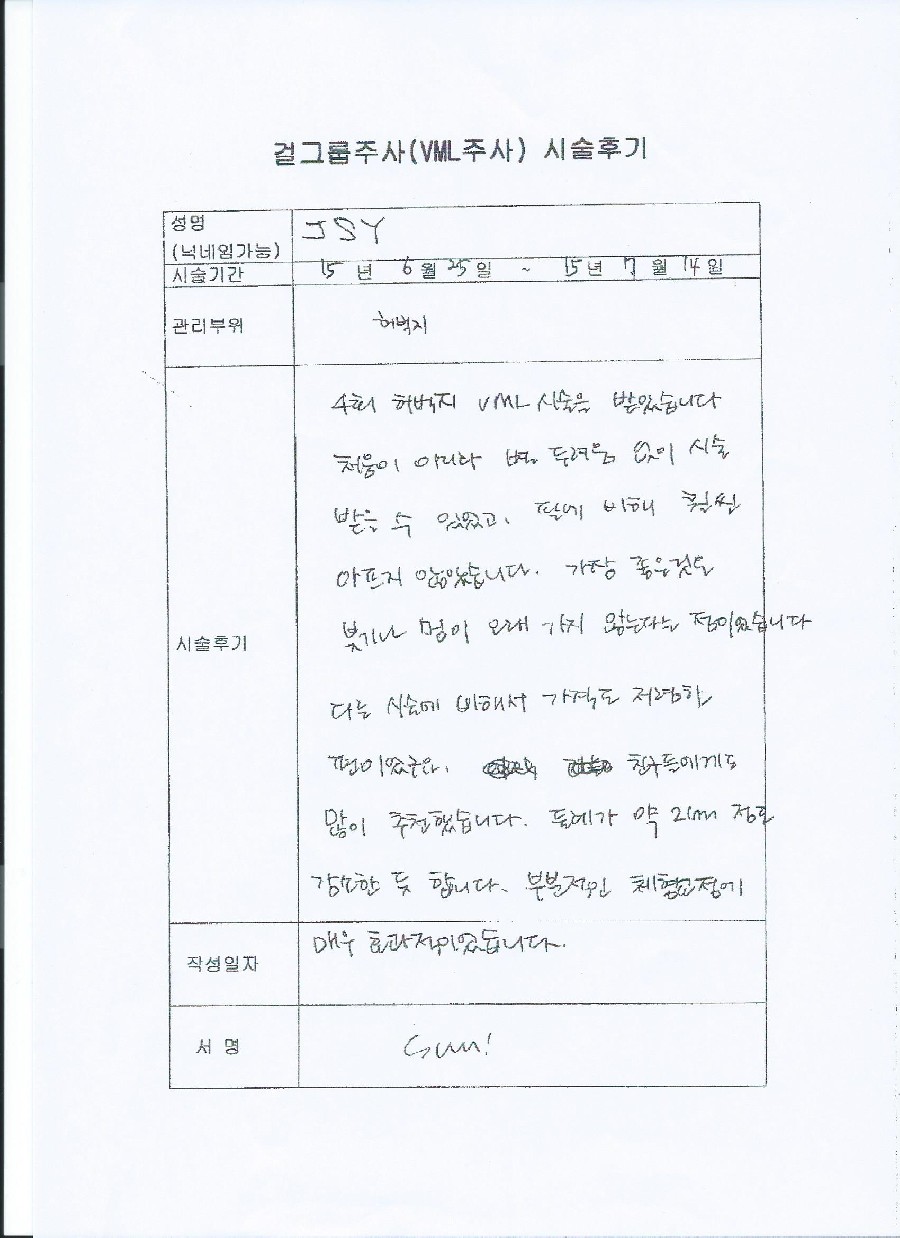 걸그룹주사(VML주사) 시술후기
성명
(닉네임가능)
JSY
시술기간
15 년 6 월 25 일 ~ 15 년 7 월 14 일
관리부위
허벅지
시술후기
4회 허벅지 VML 시술을 받았습니다
처음이 아니라 별 두려움 없이 시술
받을 수 있었고, 팔에 비해 훨씬
아프지 않았습니다. 가장 좋은것은
붓기나 멍이 오래 가지 않는다는 점이었습니다
다른 시술에 비해서 가격도 저렴한
편이었군요. 친구들에게도
많이 추천했습니다. 둘레가 약 2cm 정도
감소한 듯 합니다. 부분적인 체형교정에
매우 효과적이었습니다.
작성일자
서 명